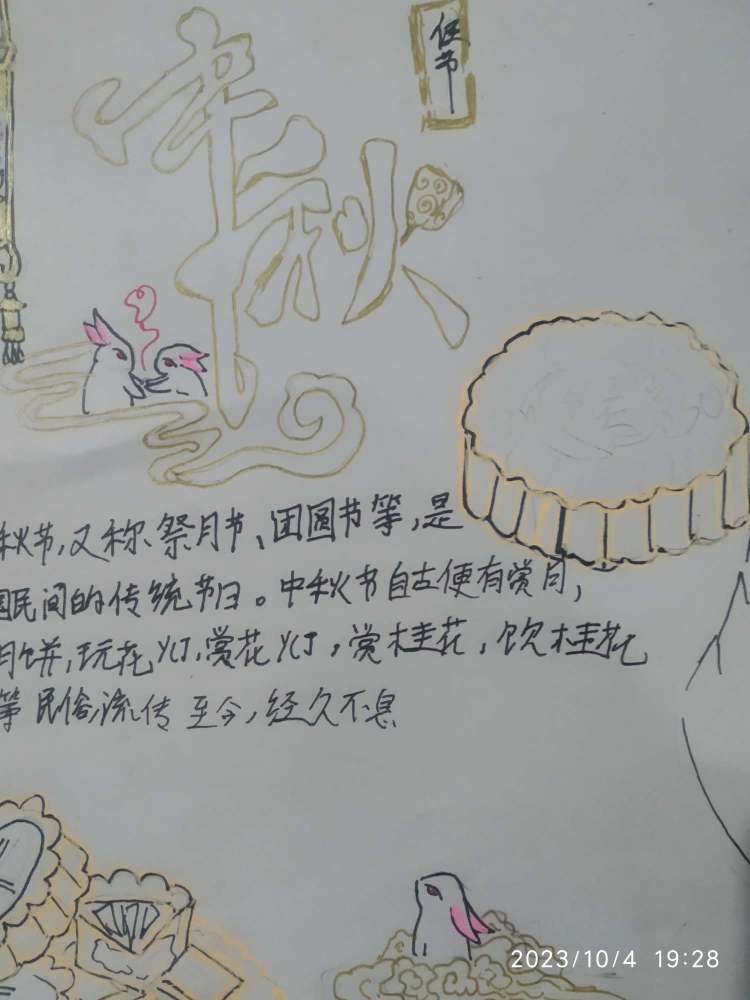 中秋
佳节
秋节,又称祭月节、团圆节等,是
国民间的传统节日。中秋节自古便有赏月,
月饼,玩花灯,赏花灯,赏桂花,饮桂花
等民俗,流传至今,经久不息
2023/10/4 19:28